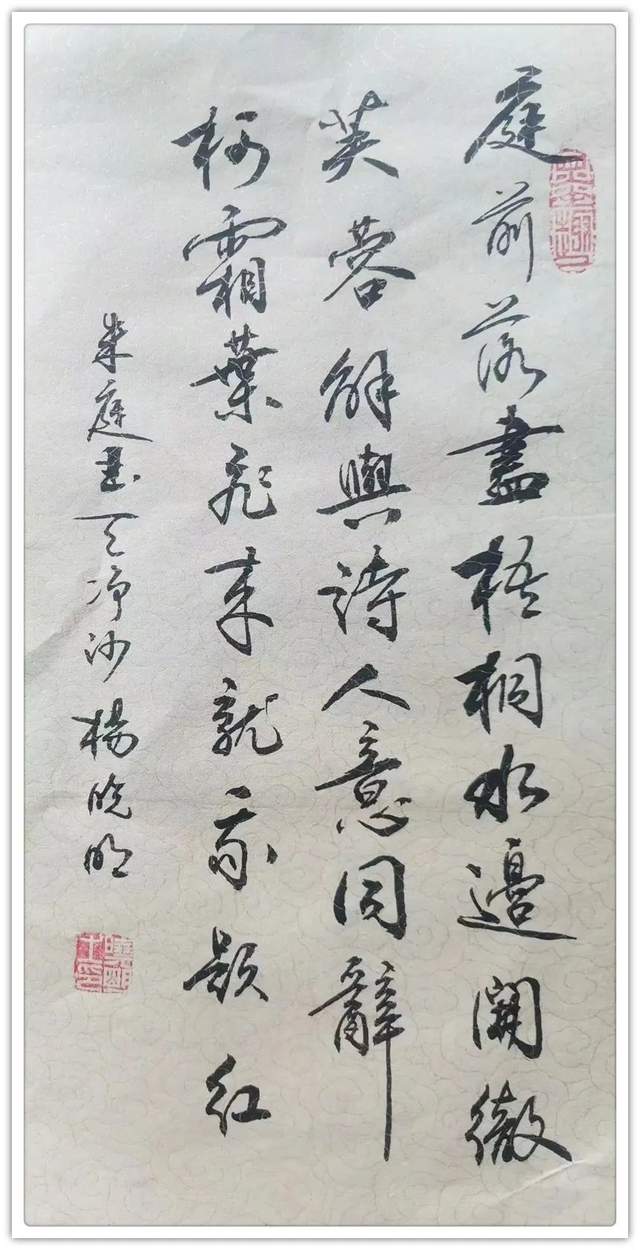 庭前落盡梧桐水邊開徹
芙蓉解與詩人意同辭
柯霜葉飛来就我題红
朱庭玉天净沙 楊晓明